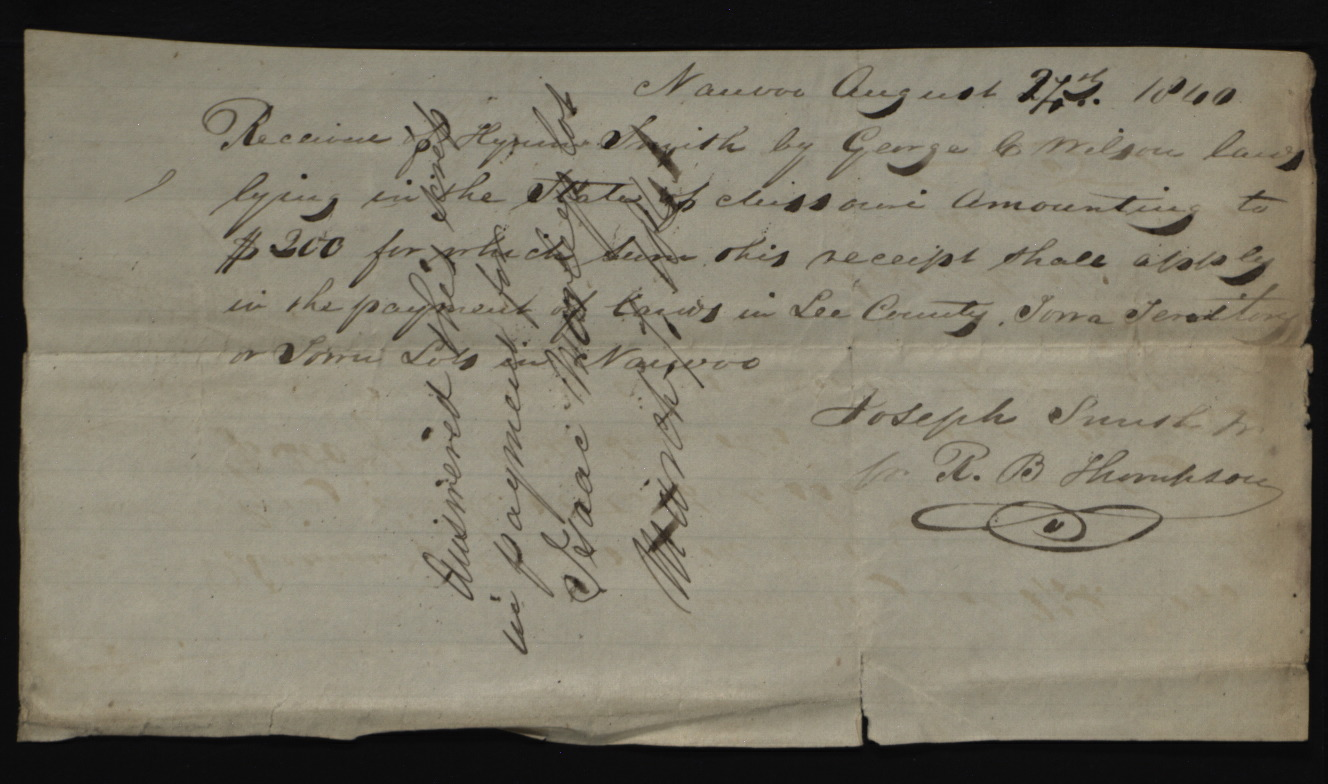 Nauvoo August 27th. 1840
Receivd of Hyrum Smith by George C Wilson lands
lying in the State of Missouri Amounting to
$200 for which sum this receipt shall apply
in the payment of lands in Lee County, Iowa Territory
or Town Lots in Nauvoo
Joseph Smith Jr.
pr R. B Thompson
Answered this
in payment for
Isaac lot
March